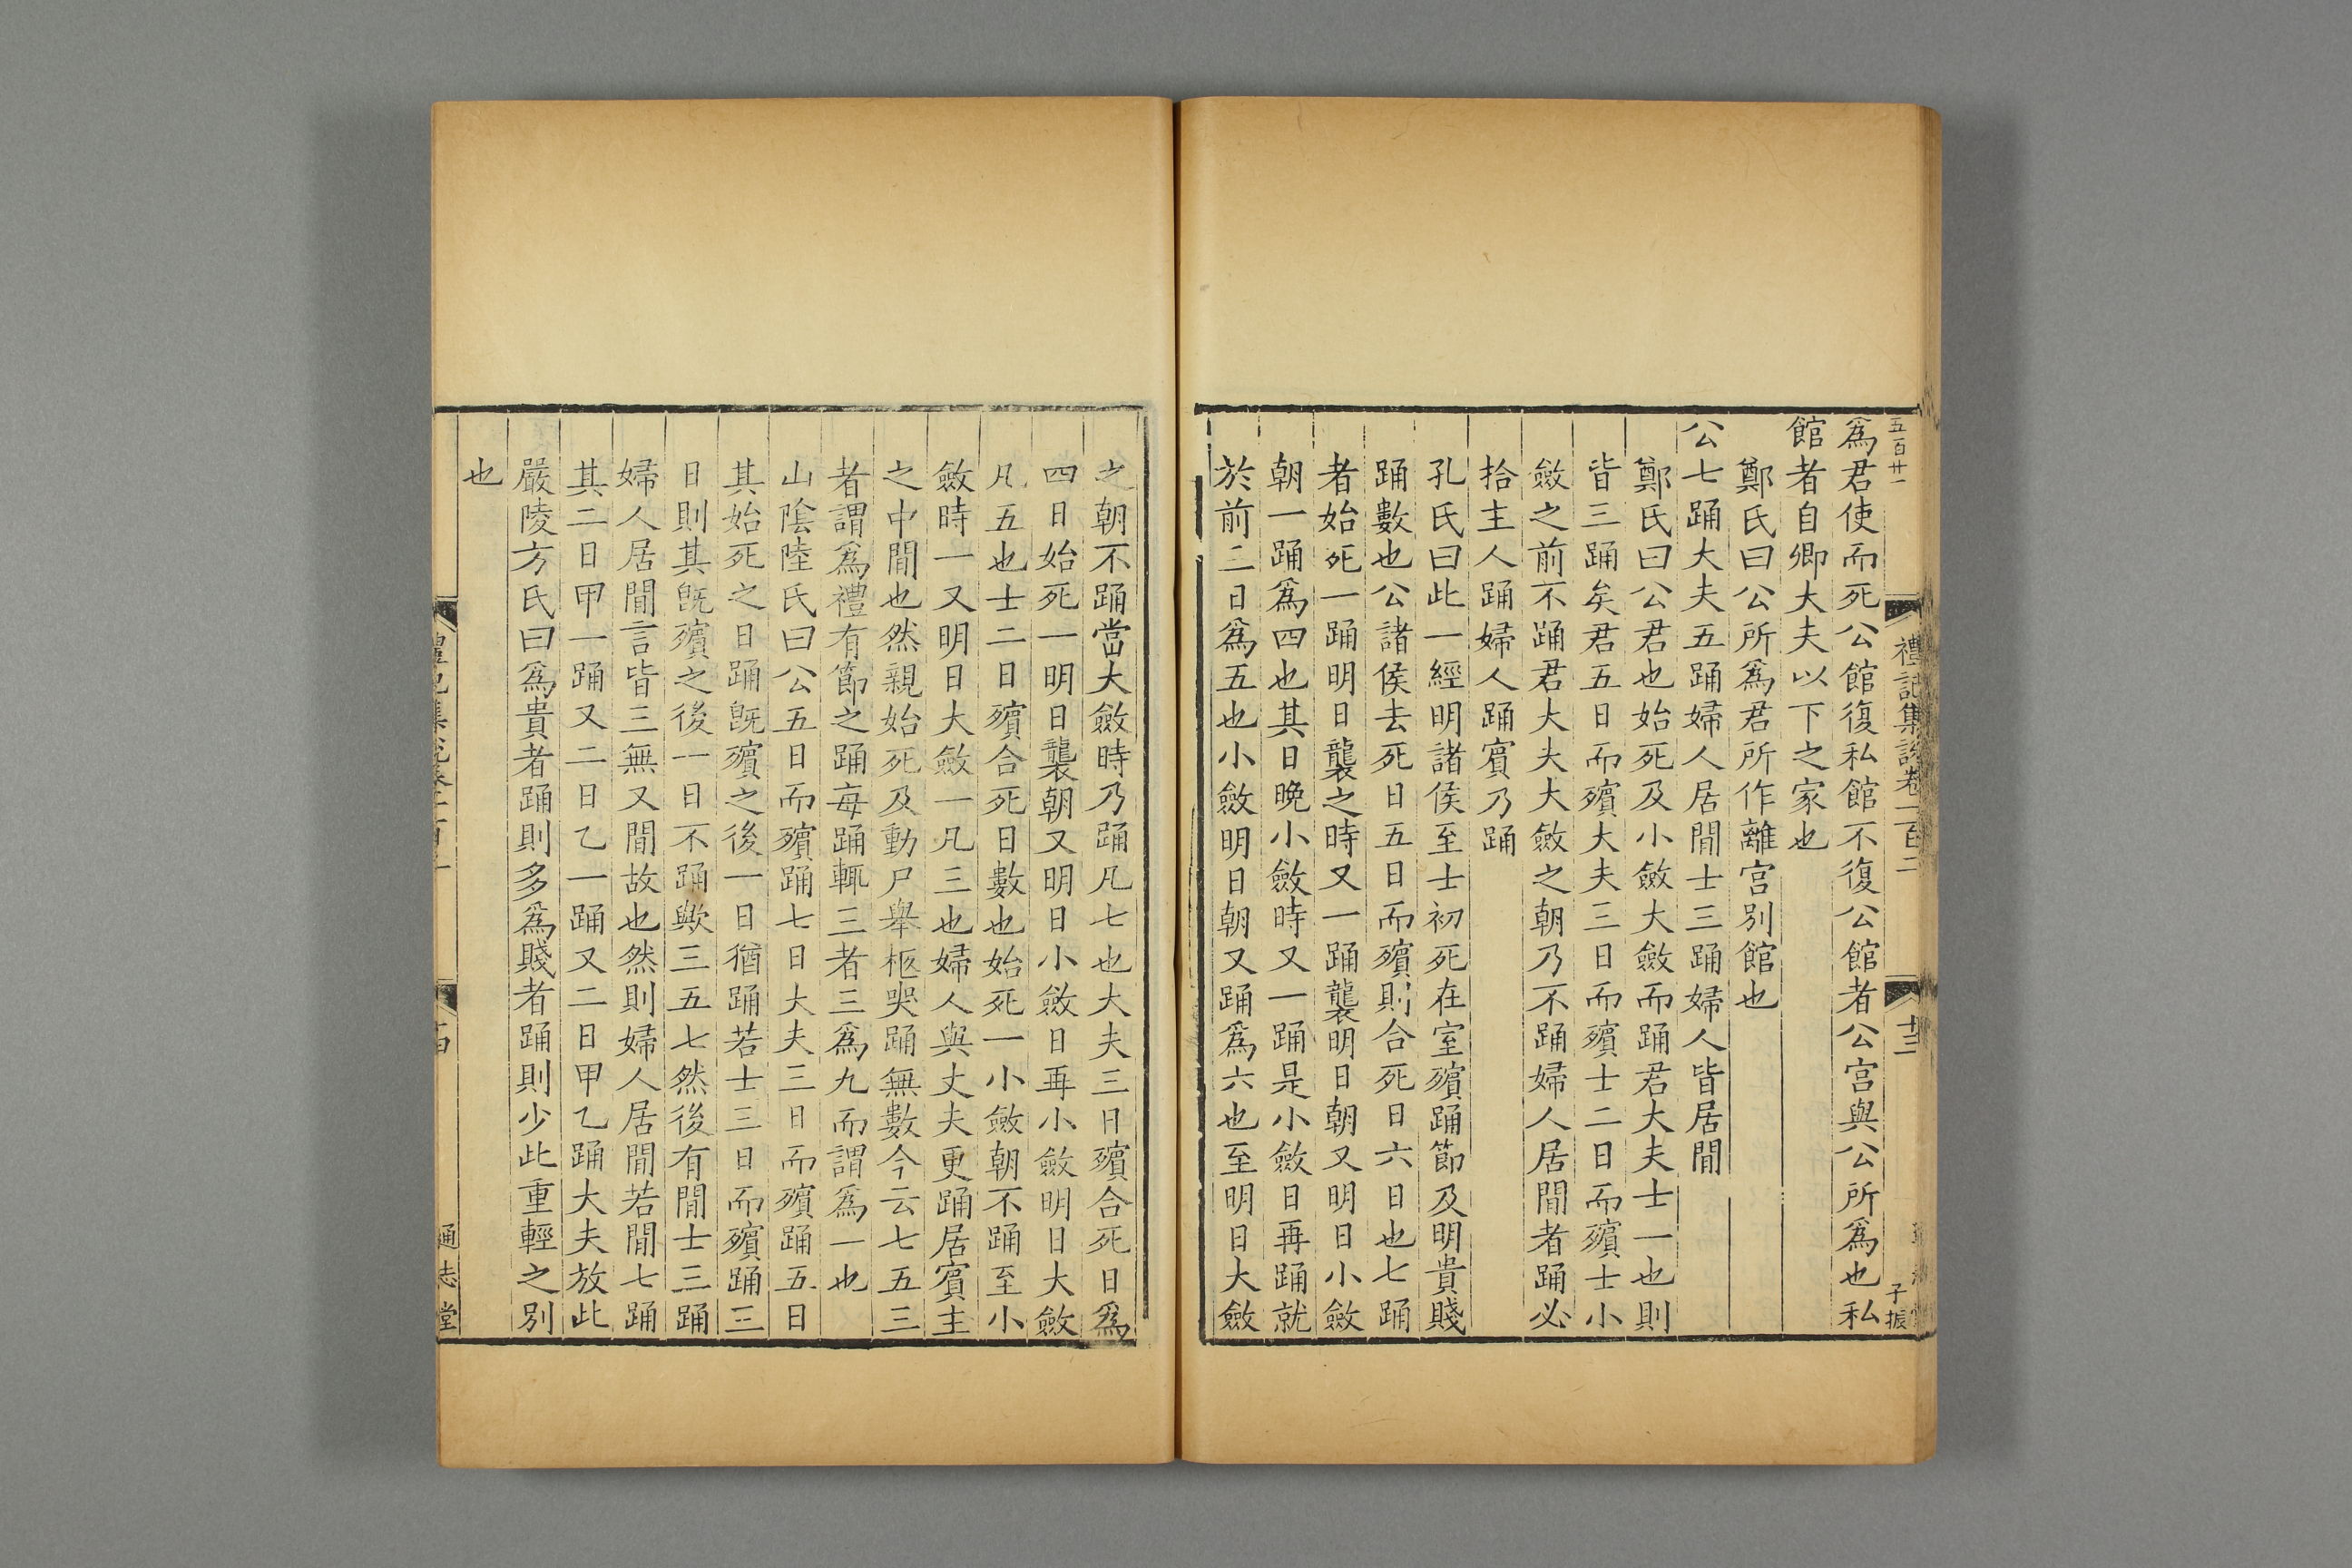 五百廿一
禮記集說卷一百二
十三
子振
爲君使而死公館復私館不復公館者公宮與公所爲也私
館者自卿大夫以下之家也
鄭氏曰公所爲君所作離宮別館也
公七踊大夫五踊婦人居閒士三踊婦人皆居閒
鄭氏曰公君也始死及小斂大斂而踊君大夫士一也則
皆三踊矣君五日而殯大夫三日而殯士二日而殯士小
斂之前不踊君大夫大斂之朝乃不踊婦人居閒者踊必
拾主人踊婦人踊賓乃踊
孔氏曰此一經明諸侯至士初死在室殯踊節及明貴賤
踊數也公諸侯去死日五日而殯則合死日六日也七踊
者始死一踊明日襲之時又一踊襲明日朝又明日小斂
朝一踊爲四也其日晚小斂時又一踊是小斂日再踊就
於前二日爲五也小斂明日朝又踊爲六也至明日大斂
之朝不踊當大斂時乃踊凡七也大夫三日殯合死日爲
四日始死一明日襲朝又明日小斂日再小斂明日大斂
凡五也士二日殯合死日數也始死一小斂朝不踊至小
斂時一又明日大斂一凡三也婦人與丈夫更踊居賓主
之中閒也然親始死及動尸舉柩哭踊無數今云七五三
者謂爲禮有節之踊每踊輒三者三爲九而謂爲一也
山陰陸氏曰公五日而殯踊七日大夫三日而殯踊五日
其始死之日踊旣殯之後一日猶踊若士三日而殯踊三
日則其旣殯之後一日不踊歟三五七然後有閒士三踊
婦人居閒言皆三無又閒故也然則婦人居閒若閒七踊
其二日甲一踊又二日乙一踊又二日甲乙踊大夫放此
嚴陵方氏曰爲貴者踊則多爲賤者踊則少此重輕之別
也
通志堂